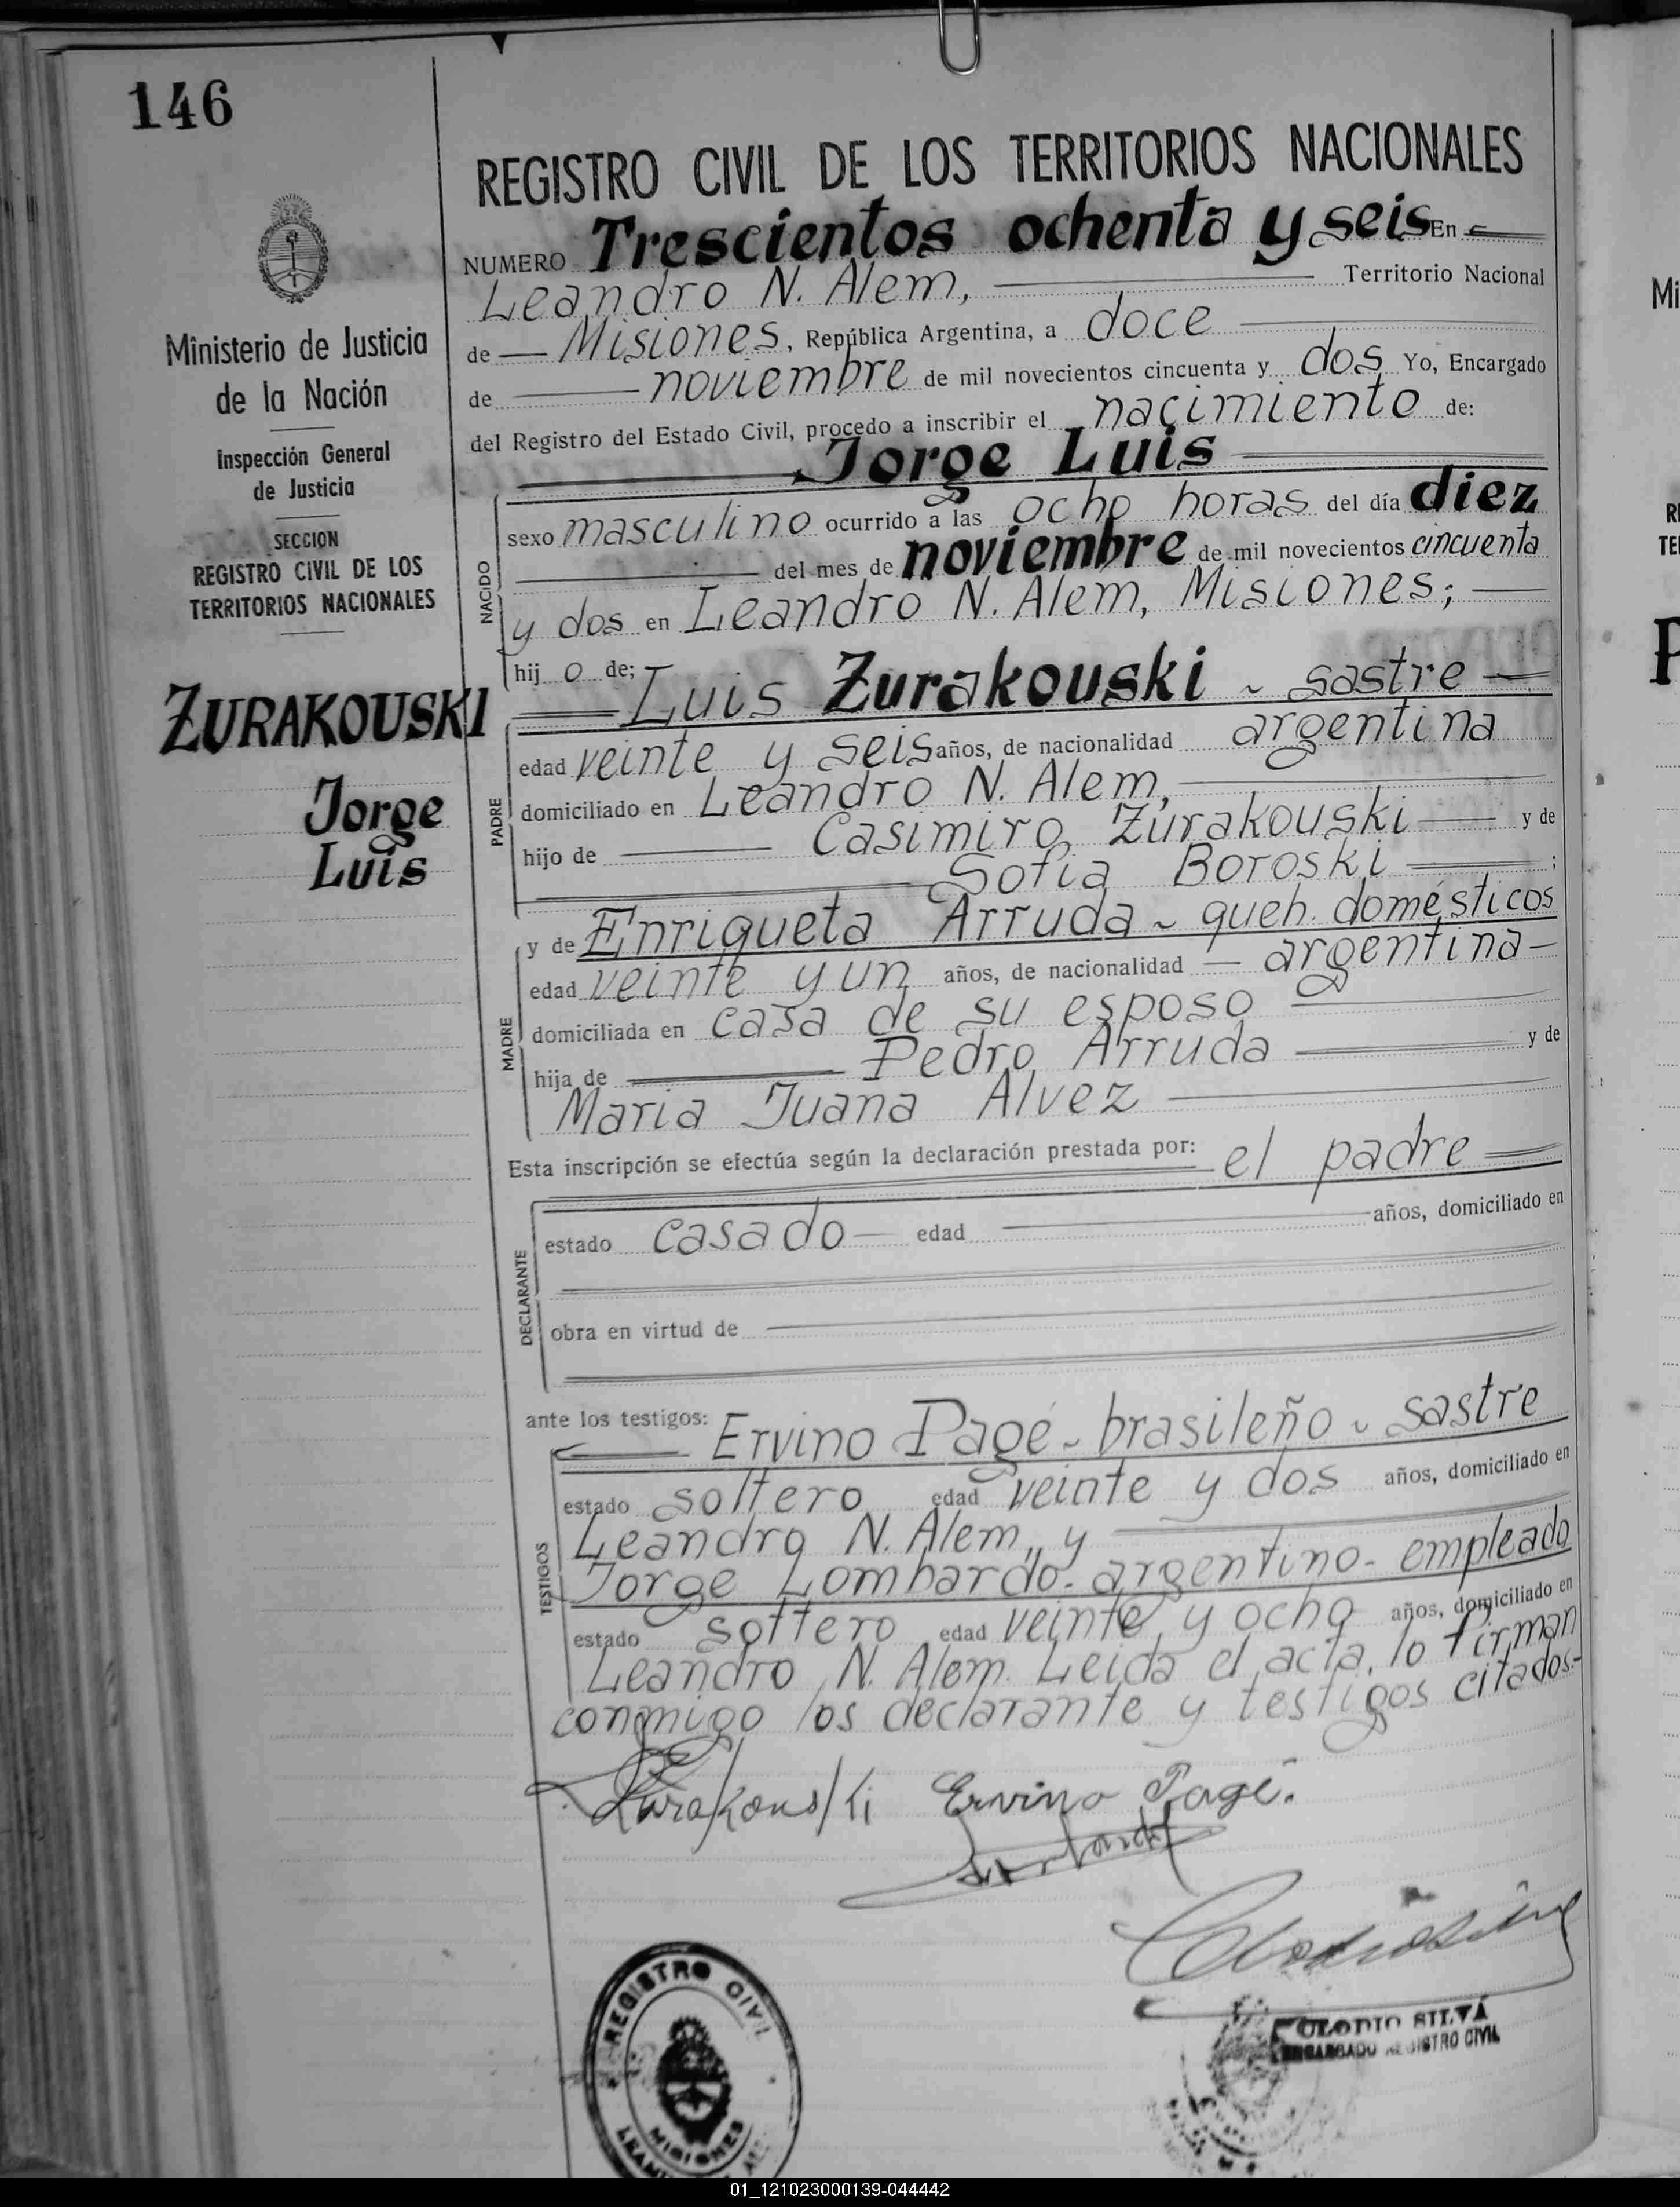 146
REGISTRO CIVIL DE LOS TERRITORIOS NACIONALES
NUMERO Trescientos ochenta y seis En
Leandro N. Alem, Territorio Nacional
de Misiones, República Argentina, a doce
de noviembre de mil novecientos cincuenta y dos Yo, Encargado
del Registro del Estado Civil, procedo a inscribir el nacimiento de:
Jorge Luis
Ministerio de Justicia
de la Nación
Inspección General
de Justicia
SECCION
REGISTRO CIVIL DE LOS
TERRITORIOS NACIONALES
ZURAKOUSKI
Jorge
Luis
NACIDO
sexo masculino ocurrido a las ocho horas del día diez
del mes de noviembre de mil novecientos cincuenta
y dos en Leandro N. Alem, Misiones;
hij o de;
Luis Zurakouski ~ sastre
PADRE
edad veinte y seis años, de nacionalidad argentina
domiciliado en Leandro N. Alem,
hijo de Casimiro Zurakouski y de
Sofia Boroski ;
MADRE
y de Enriqueta Arruda ~ queh. domésticos
edad veinte y un años, de nacionalidad argentina
domiciliada en casa de su esposo
hija de Pedro Arruda y de
Maria Juana Alvez
Esta inscripción se efectúa según la declaración prestada por: el padre
DECLARANTE
estado casado edad años, domiciliado en
obra en virtud de
ante los testigos:
Ervino Pagé ~ brasileño ~ sastre
TESTIGOS
estado soltero edad veinte y dos años, domiciliado en
Leandro N. Alem, y
Jorge Lombardo - argentino - empleado
estado soltero edad veinte y ocho años, domiciliado en
Leandro N. Alem. Leida el acta, lo firman
conmigo los declarante y testigos citados.-
Zurakouski Ervino Pagé.
REGISTRO CIVIL
MISIONES
CLODIO SILVA
ENCARGADO REGISTRO CIVIL
01_121023000139-044442